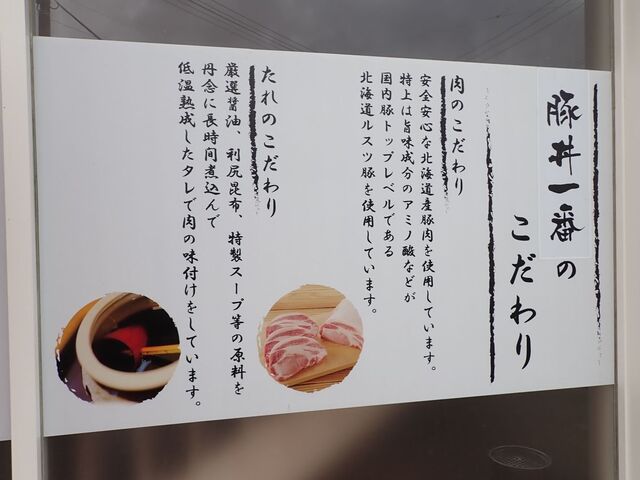 豚丼一番の
こだわり
肉のこだわり
安全安心な北海道産豚肉を使用しています。
特上は旨味成分のアミノ酸などが
国内豚トップレベルである
北海道ルスツ豚を使用しています。
たれのこだわり
厳選醤油、利尻昆布、特製スープ等の原料を
丹念に長時間煮込んで
低温熟成したタレで肉の味付けをしています。